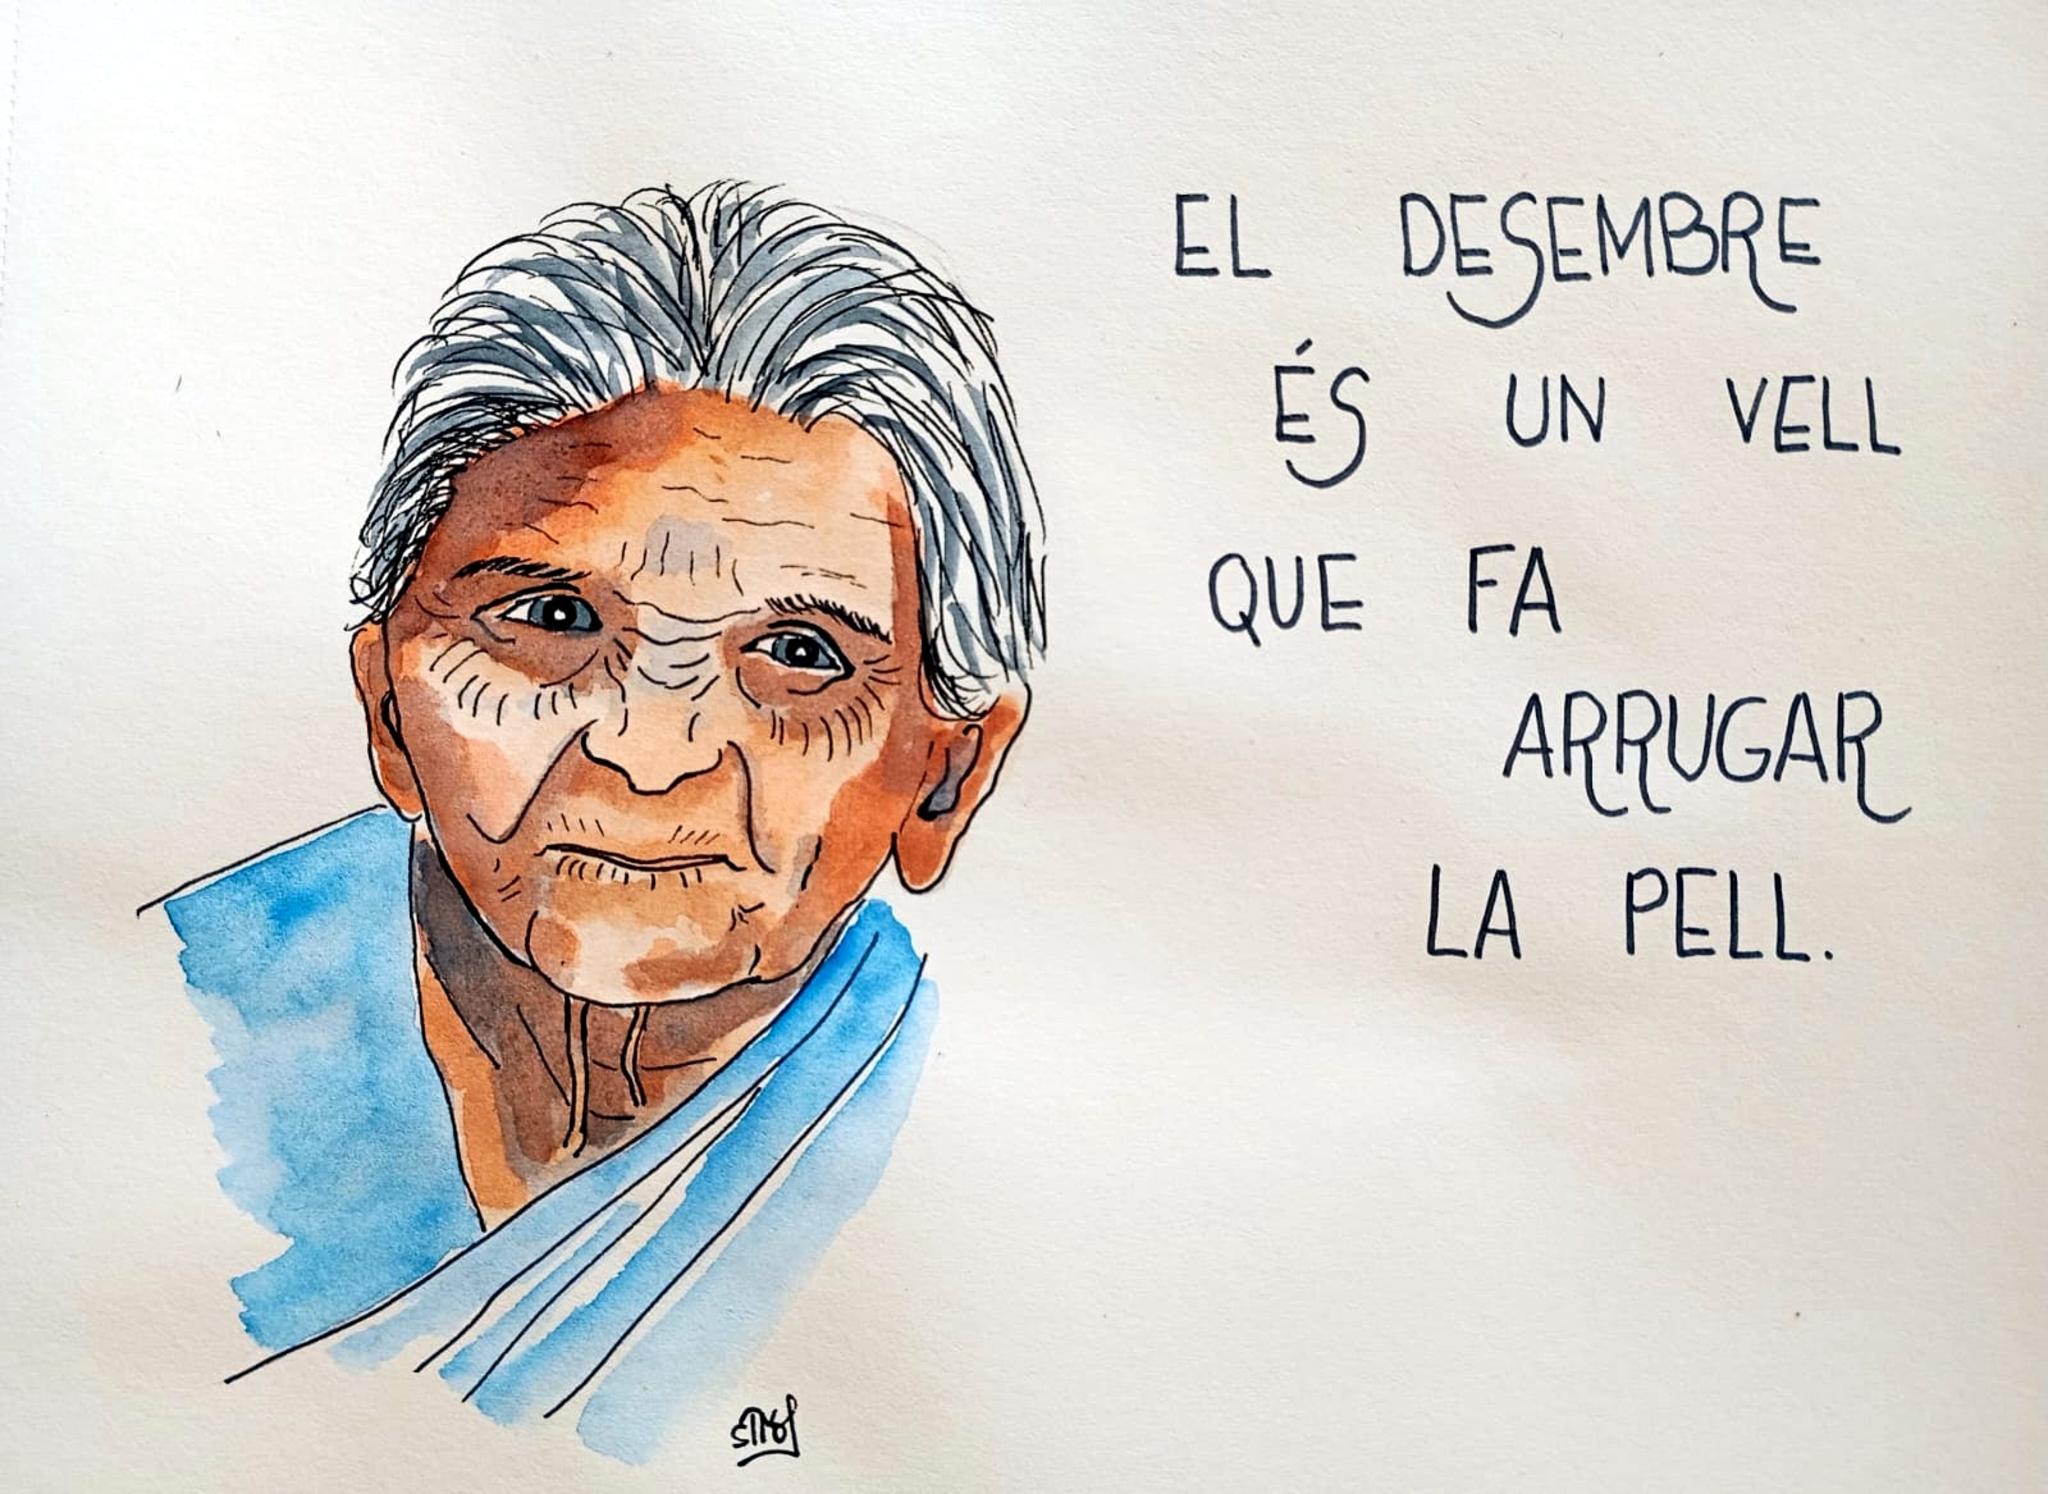 EL DESEMBRE
ÉS UN VELL
QUE FA
ARRUGAR
LA PELL.